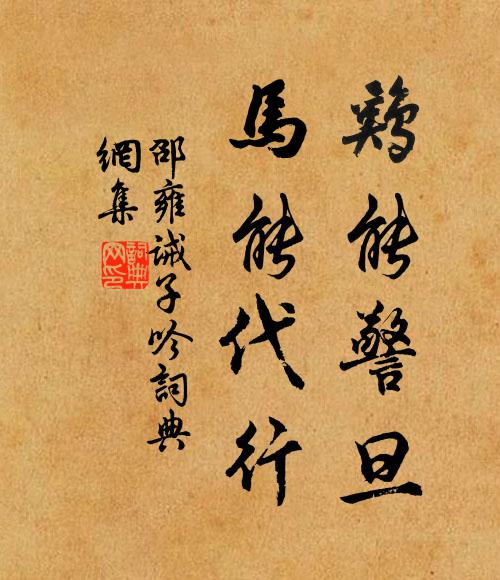 鷄能警旦
馬能代行
邵雍诫子吟詞典
網集
詞典
网印